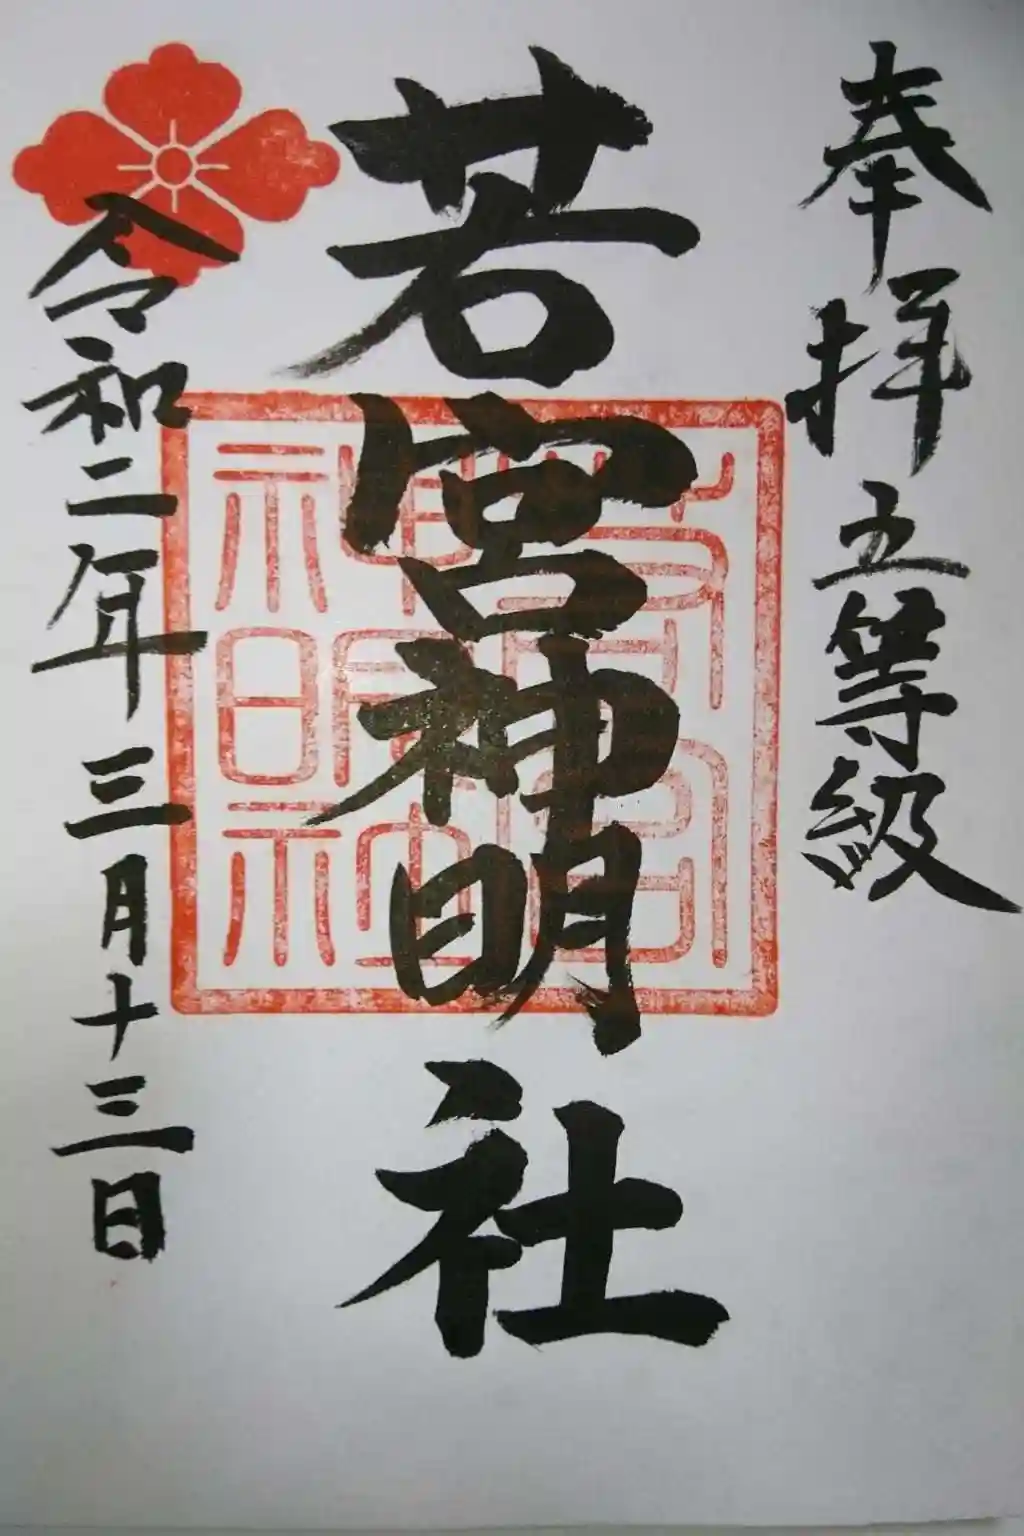 奉拝 五等級
若宮神明社
令和二年 三月十三日
若宮
神明社